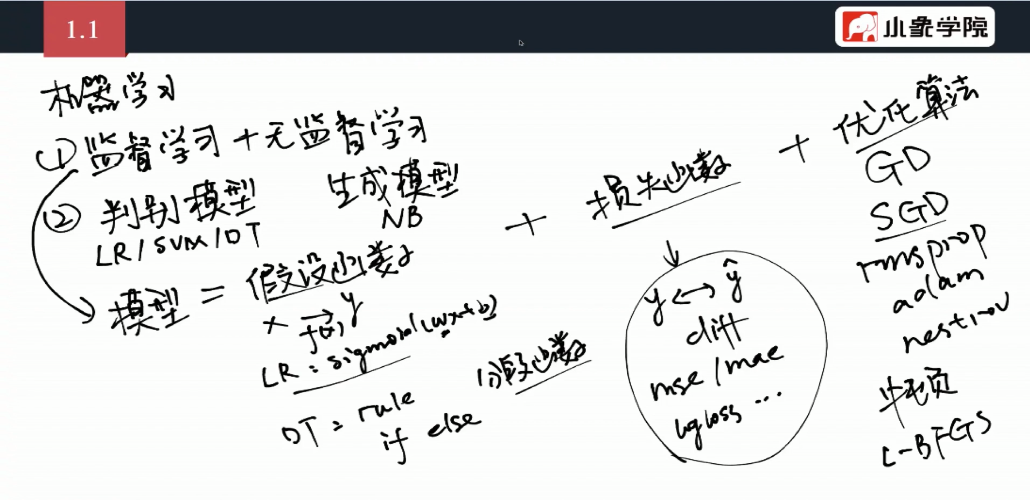 1.1
小象学院
机器学习
① 监督学习 + 无监督学习
② 判别模型 生成模型
LR / SVM / DT NB
模型 = 假设函数 + 损失函数 + 优化算法
x → y
f(x)
LR = sigmoid(wx+b)
DT = rule 分段函数
if else
y ↔ ŷ
diff
mse / mae
logloss ...
GD
SGD
rmsprop
adam
nestrov
牛顿
L-BFGS